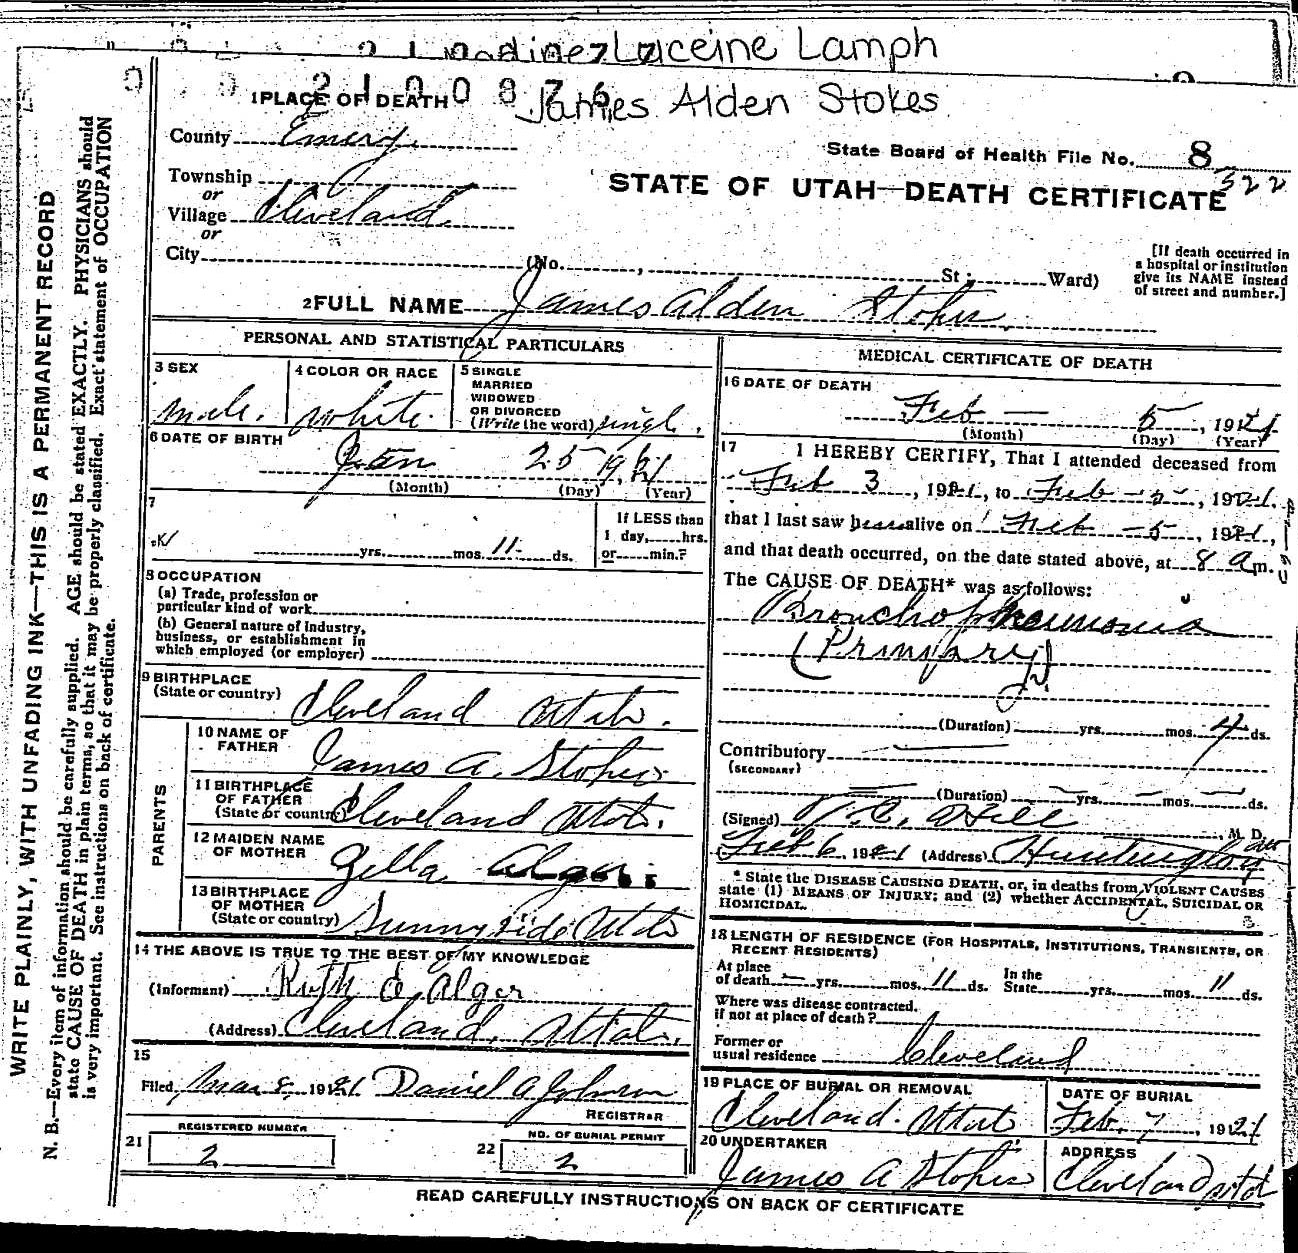 Luceine Lamph
2100876
James Alden Stokes
1 PLACE OF DEATH
County Emery
State Board of Health File No. 8
322
Township
or
STATE OF UTAH—DEATH CERTIFICATE
Village Cleveland
or
City
(No. , St; Ward)
[If death occurred in
a hospital or institution
give its NAME instead
of street and number.]
2 FULL NAME James Alden Stokes
PERSONAL AND STATISTICAL PARTICULARS
3 SEX
male.
4 COLOR OR RACE
white.
5 SINGLE
MARRIED
WIDOWED
OR DIVORCED
(Write the word) single.
6 DATE OF BIRTH
Jan 25 1921
(Month) (Day) (Year)
7
yrs. mos. 11 ds.
If LESS than
1 day, hrs.
or min.?
8 OCCUPATION
(a) Trade, profession or
particular kind of work
(b) General nature of industry,
business, or establishment in
which employed (or employer)
9 BIRTHPLACE
(State or country) Cleveland Utah.
PARENTS
10 NAME OF
FATHER James A. Stokes
11 BIRTHPLACE
OF FATHER
(State or country) Cleveland Utah.
12 MAIDEN NAME
OF MOTHER Zella Alger
13 BIRTHPLACE
OF MOTHER
(State or country) Sunnyside Utah
14 THE ABOVE IS TRUE TO THE BEST OF MY KNOWLEDGE
(Informant) Ruth E Alger
(Address) Cleveland, Utah.
15
Filed Mar 8, 1921 Daniel A Johnson
REGISTRAR
REGISTERED NUMBER
21 2
NO. OF BURIAL PERMIT
22 2
MEDICAL CERTIFICATE OF DEATH
16 DATE OF DEATH
Feb — 5, 1921
(Month) (Day) (Year)
17 I HEREBY CERTIFY, That I attended deceased from
Feb 3, 1921, to Feb — 5, 1921.
that I last saw h alive on Feb — 5, 1921,
and that death occurred, on the date stated above, at 8 a m.
The CAUSE OF DEATH* was as follows:
Broncho pneumonia
(Primary)
(Duration) yrs. mos. 4 ds.
Contributory
(SECONDARY)
(Duration) yrs. mos. ds.
(Signed) Hill, M. D.
Feb 6, 1921 (Address) Huntington
* State the DISEASE CAUSING DEATH, or, in deaths from VIOLENT CAUSES
state (1) MEANS OF INJURY; and (2) whether ACCIDENTAL, SUICIDAL OR
HOMICIDAL.
18 LENGTH OF RESIDENCE (FOR HOSPITALS, INSTITUTIONS, TRANSIENTS, OR
RECENT RESIDENTS)
At place
of death — yrs. mos. 11 ds. In the
State yrs. mos. 11 ds.
Where was disease contracted.
if not at place of death?
Former or
usual residence Cleveland
19 PLACE OF BURIAL OR REMOVAL
Cleveland. Utah
DATE OF BURIAL
Feb. 7, 1921
20 UNDERTAKER
James A Stokes
ADDRESS
Cleveland Utah
READ CAREFULLY INSTRUCTIONS ON BACK OF CERTIFICATE
WRITE PLAINLY, WITH UNFADING INK—THIS IS A PERMANENT RECORD
N. B.—Every item of information should be carefully supplied. AGE should be stated EXACTLY. PHYSICIANS should
state CAUSE OF DEATH in plain terms, so that it may be properly classified. Exact statement of OCCUPATION
is very important. See instructions on back of certificate.